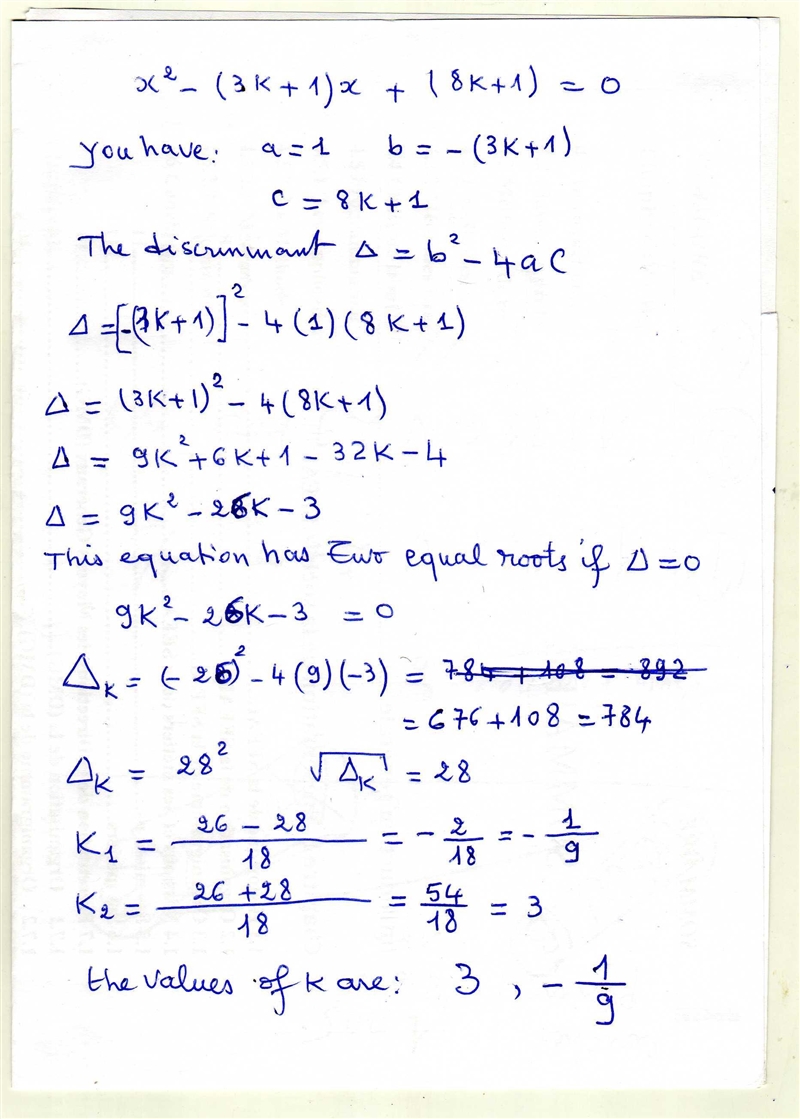 x² - (3K+1)x + (8K+1) = 0
You have: a = 1 b = -(3K+1)
c = 8K+1
The discrimnant Δ = b² - 4aC
Δ = [-(3K+1)]² - 4(1)(8K+1)
Δ = (3K+1)² - 4(8K+1)
Δ = 9K² + 6K + 1 - 32K - 4
Δ = 9K² - 26K - 3
This equation has Two equal roots if Δ = 0
9K² - 26K - 3 = 0
Δ_K = (-26)² - 4(9)(-3) = 784 + 108 = 892
= 676 + 108 = 784
Δ_K = 28² √Δ_K = 28
K₁ = (26 - 28)/18 = -2/18 = -1/9
K₂ = (26 + 28)/18 = 54/18 = 3
the values of K are: 3 , -1/9